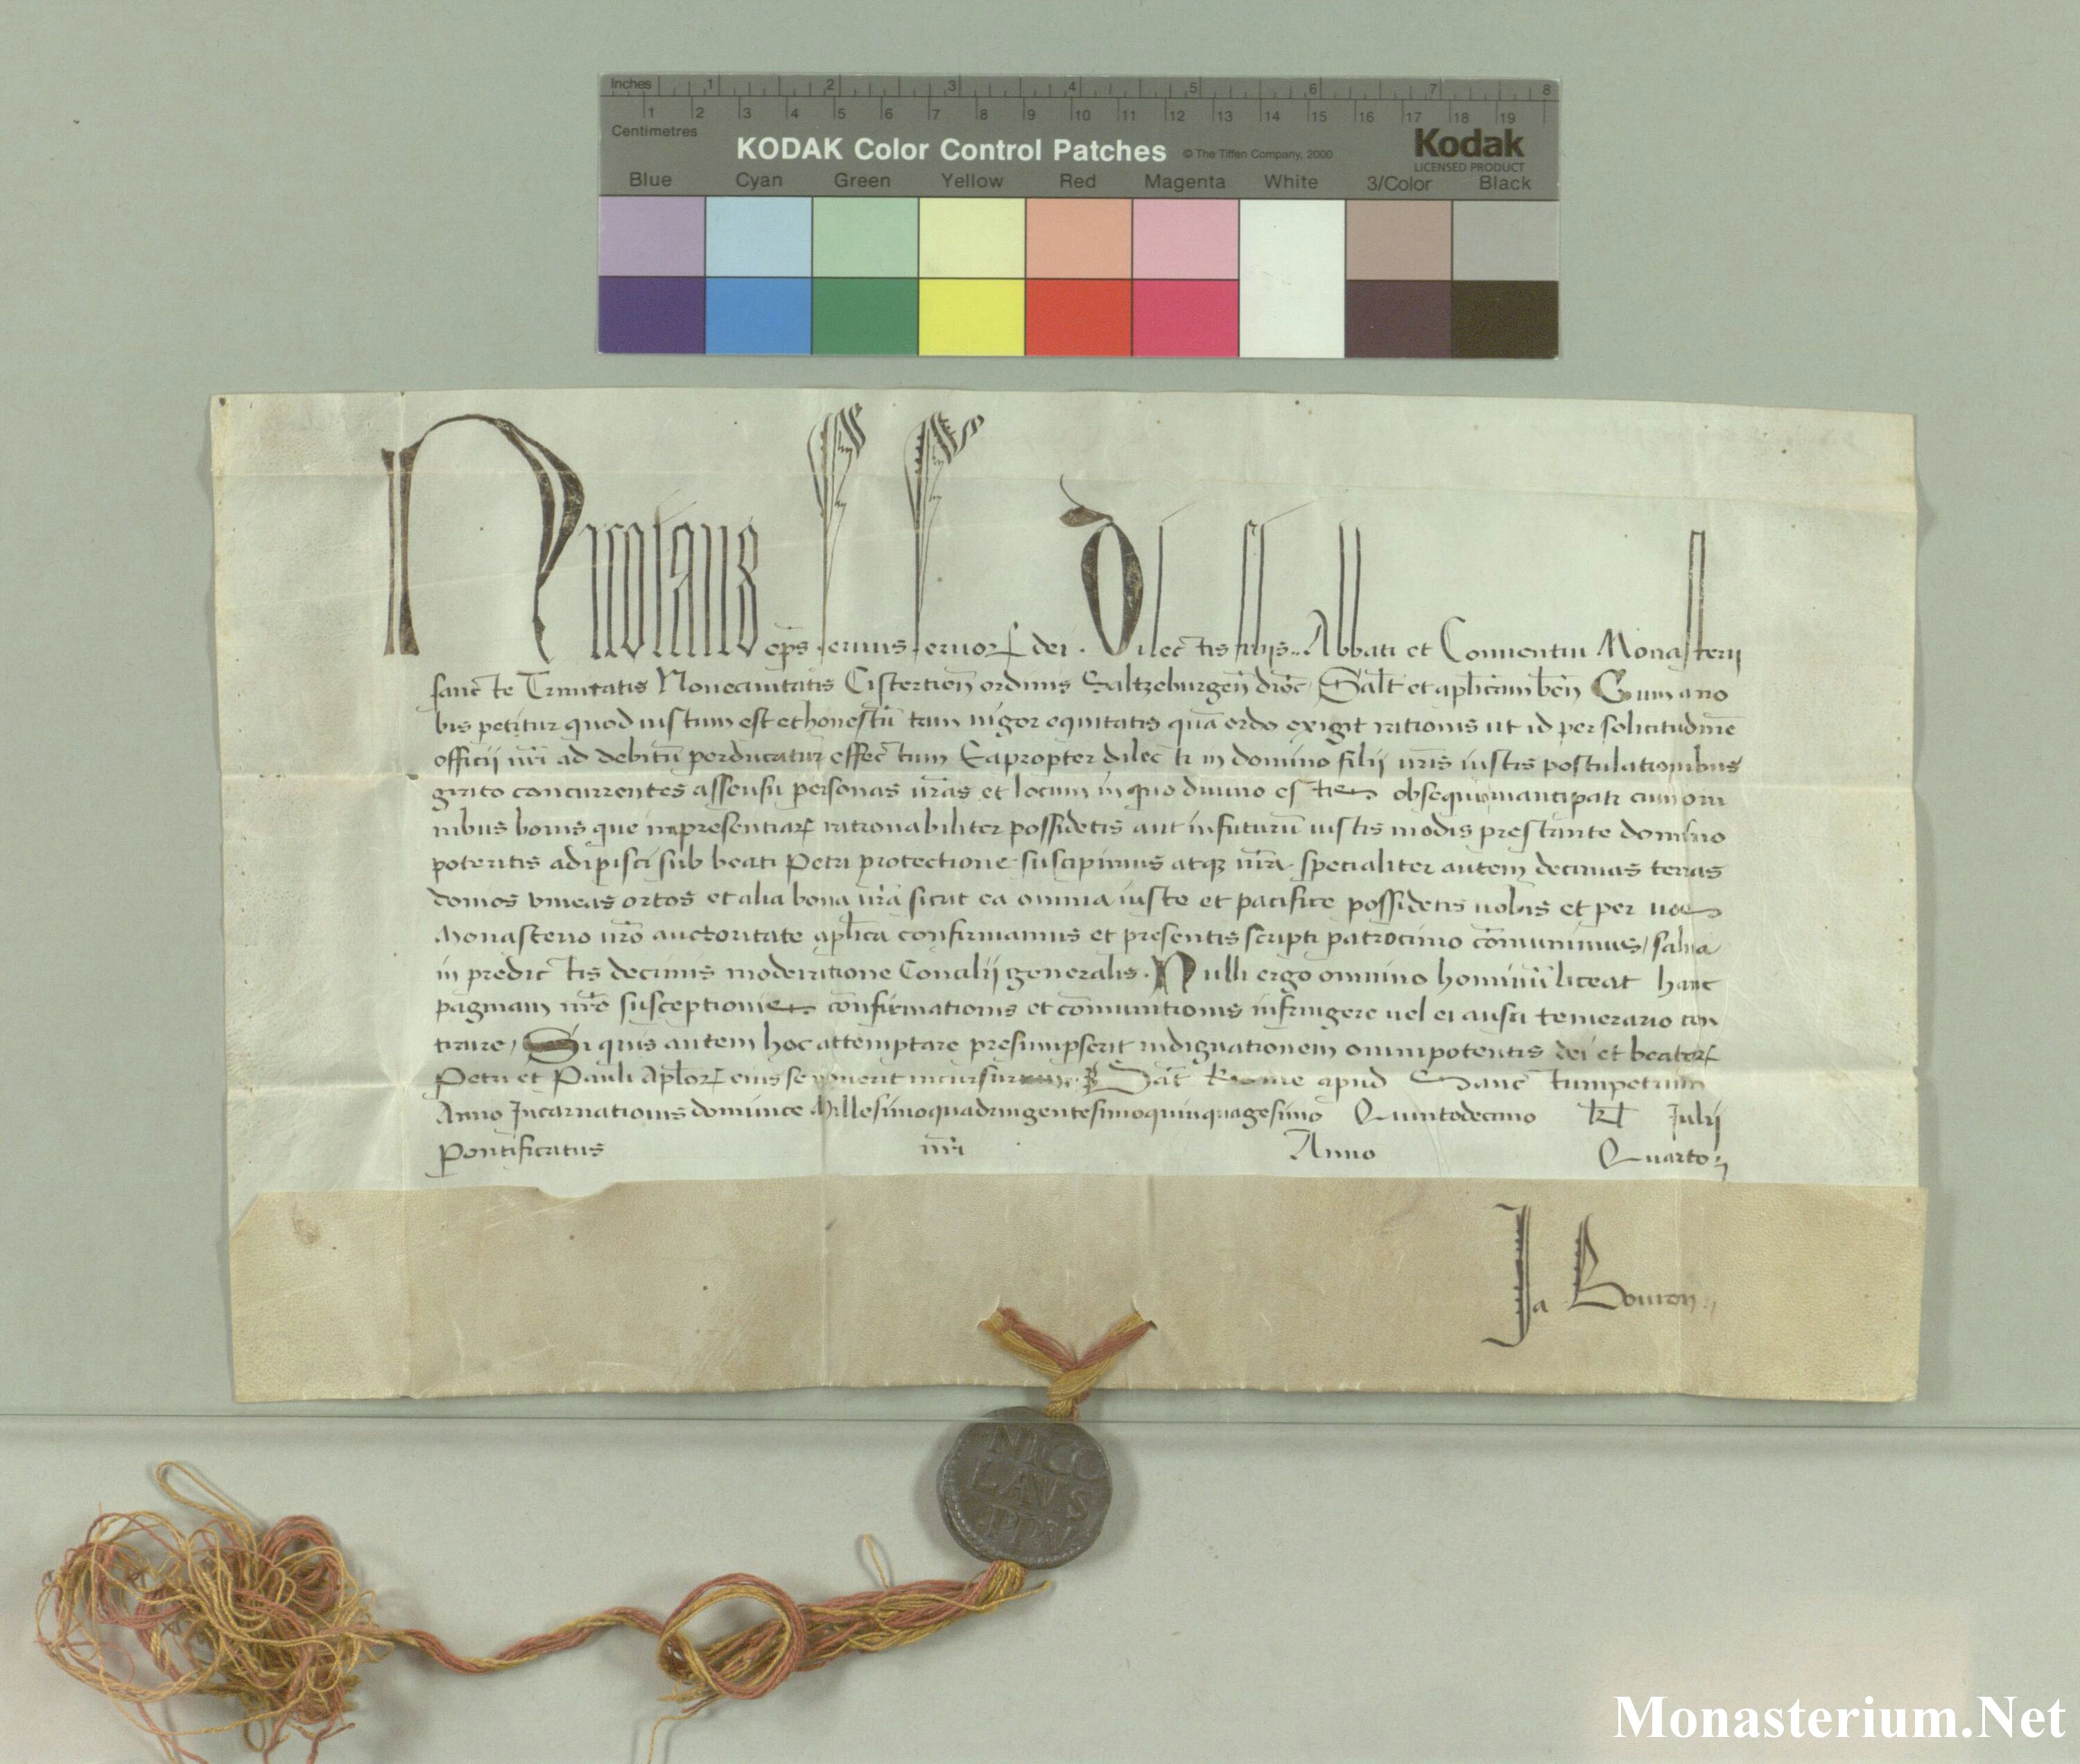 Inches 1 2 3 4 5 6 7 8
1 2 3 4 5 6 7 8 9 10 11 12 13 14 15 16 17 18 19
Centimetres
KODAK Color Control Patches © The Tiffen Company, 2000 Kodak
LICENSED PRODUCT
Blue Cyan Green Yellow Red Magenta White 3/Color Black
Nicolaus ep̄s seruus seruoꝝ dei . Dilectis filijs .. Abbati et Conuentui Monasterij
sancte Trinitatis Nouecuiitatis Cistercien̄ ordinis Saltzeburgen̄ dioc̄ Salt̄ et aplicam̄ ben̄ Cum a no
bis petitur quod iustum est et honestū tam uigor equitatis quā ordo exigit rationis ut id per solicitudinē
officij nr̄i ad debitū perducatur effectum Eapropter dilecti in domino filij ur̄is iustis postulationibus
grato concurrentes assensu personas ur̄as et locum in quo diuino estis obsequio mancipati cum om
nibus bonis que inpresentiaꝝ rationabiliter possidetis aut infuturū iustis modis prestante domino
poteritis adipisci sub beati Petri protectione suscipimus atqꝫ nr̄a. specialiter autem decimas terras
domos vineas ortos et alia bona ur̄a sicut ea omnia iuste et pacifice possidetis uobis et per uos
Monasterio ur̄o auctoritate aplica confirmamus et presentis scripti patrocinio cōmunimus/ salua
in predictis decimis moderatione Concilij generalis . Nulli ergo omnino hominū liceat hanc
paginam nr̄e susceptionis cōnfirmationis et cōmunitionis infringere uel ei ausu temerario con
traire/ Si quis autem hoc attemptare presumpserit indignationem omnipotentis dei et beatoꝝ
Petri et Pauli Aploꝝ eius se nouerit incursurum. Dat̄ Rome apud Sanctumpetrum
Anno Incarnationis dominice Millesimoquadringentesimoquinquagesimo Quintodecimo kl̄ Julij
Pontificatus nr̄i Anno Quarto
Ja
NICO
LAVS
PP V
Monasterium.Net